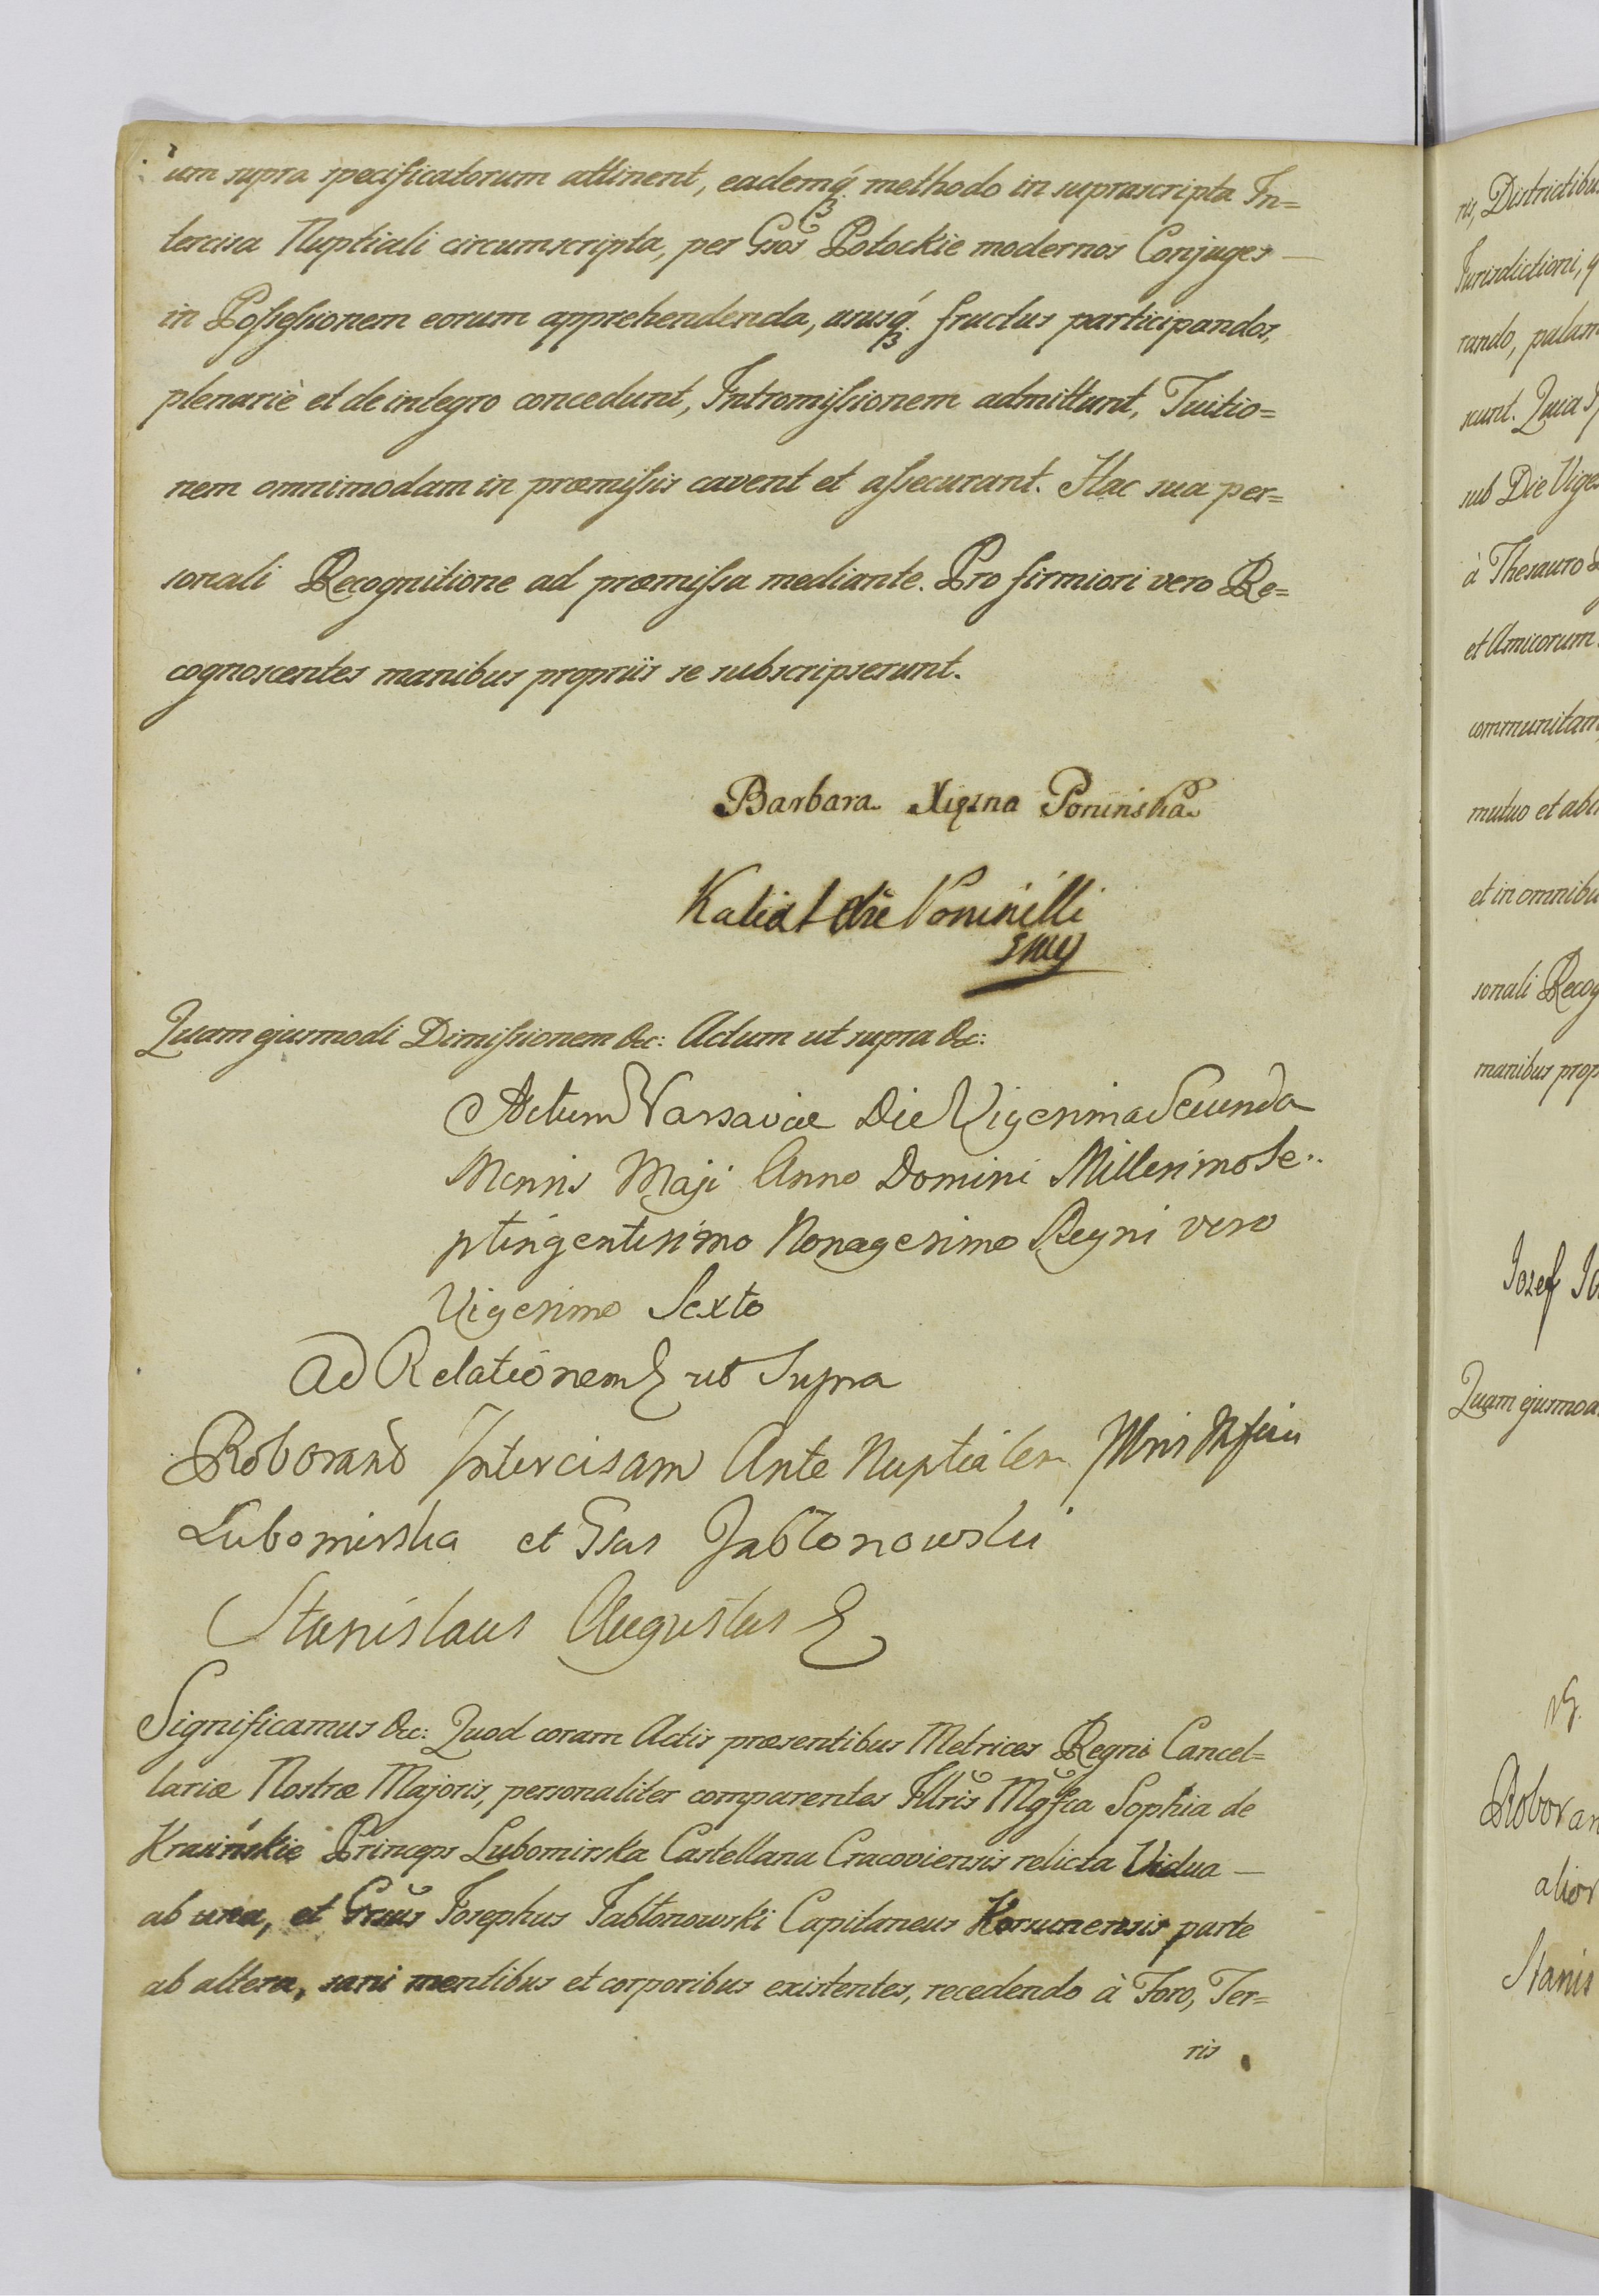 um supra specificatorum attinent, eademq́ꝫ methodo in suprascripta In=
tercisa Nuptiali circumscripta, per Gsos Potockie modernos Conjuges —
in Poſseſsionem eorum apprehendenda, ususq́ꝫ fructus participandos,
plenariè et de integro concedunt, Intromiſsionem admittunt, Tuitio=
nem omnimodam in præmiſsis cavent et aſsecurant. Hac sua per=
sonali Recognitione ad præmiſsa mediante. Pro firmiori vero Re=
cognoscentes manibus propriis se subscripserunt.
Barbara Xięzna Poninska
Quam ejusmodi Dimiſsionem &c: Actum ut supra &c:
Actum Varsaviæ Die Vigesima Secunda
Mensis Maji Anno Domini Millesimo Se..
ptingentisimo Nonagesimo Regni vero
Vigesimo Sexto
Ad Relationem ut Supra
Roborand Intercisam Ante Nuptialem Illris
Lubomirska et Gsus Jabłonowski
Stanislaus Augustus
Significamus &c: Quod coram Actis præsentibus Metrices Regni Cancel=
lariæ Nostræ Majoris, personaliter comparentes Illris Mgfica Sophia de
Krasińskie Princeps Lubomirska Castellana Cracoviensis relicta Vidua —
ab una, et Gsus Josephus Jabłonowski Capitaneus Korsunensis parte
ab altera, sani mentibus et corporibus existentes, recedendo à Foro, Ter=
ris
ris, Districtibus
Jurisdictioni, q
rando, palam
scunt. Quia
sub Die Viges
à Thesauro
et Amicorum
communitam
mutuo et ab
et in omnibu
sonali Recog
manibus prop
Jozef
Quam ejusmod
Roboran
alior
Stanis